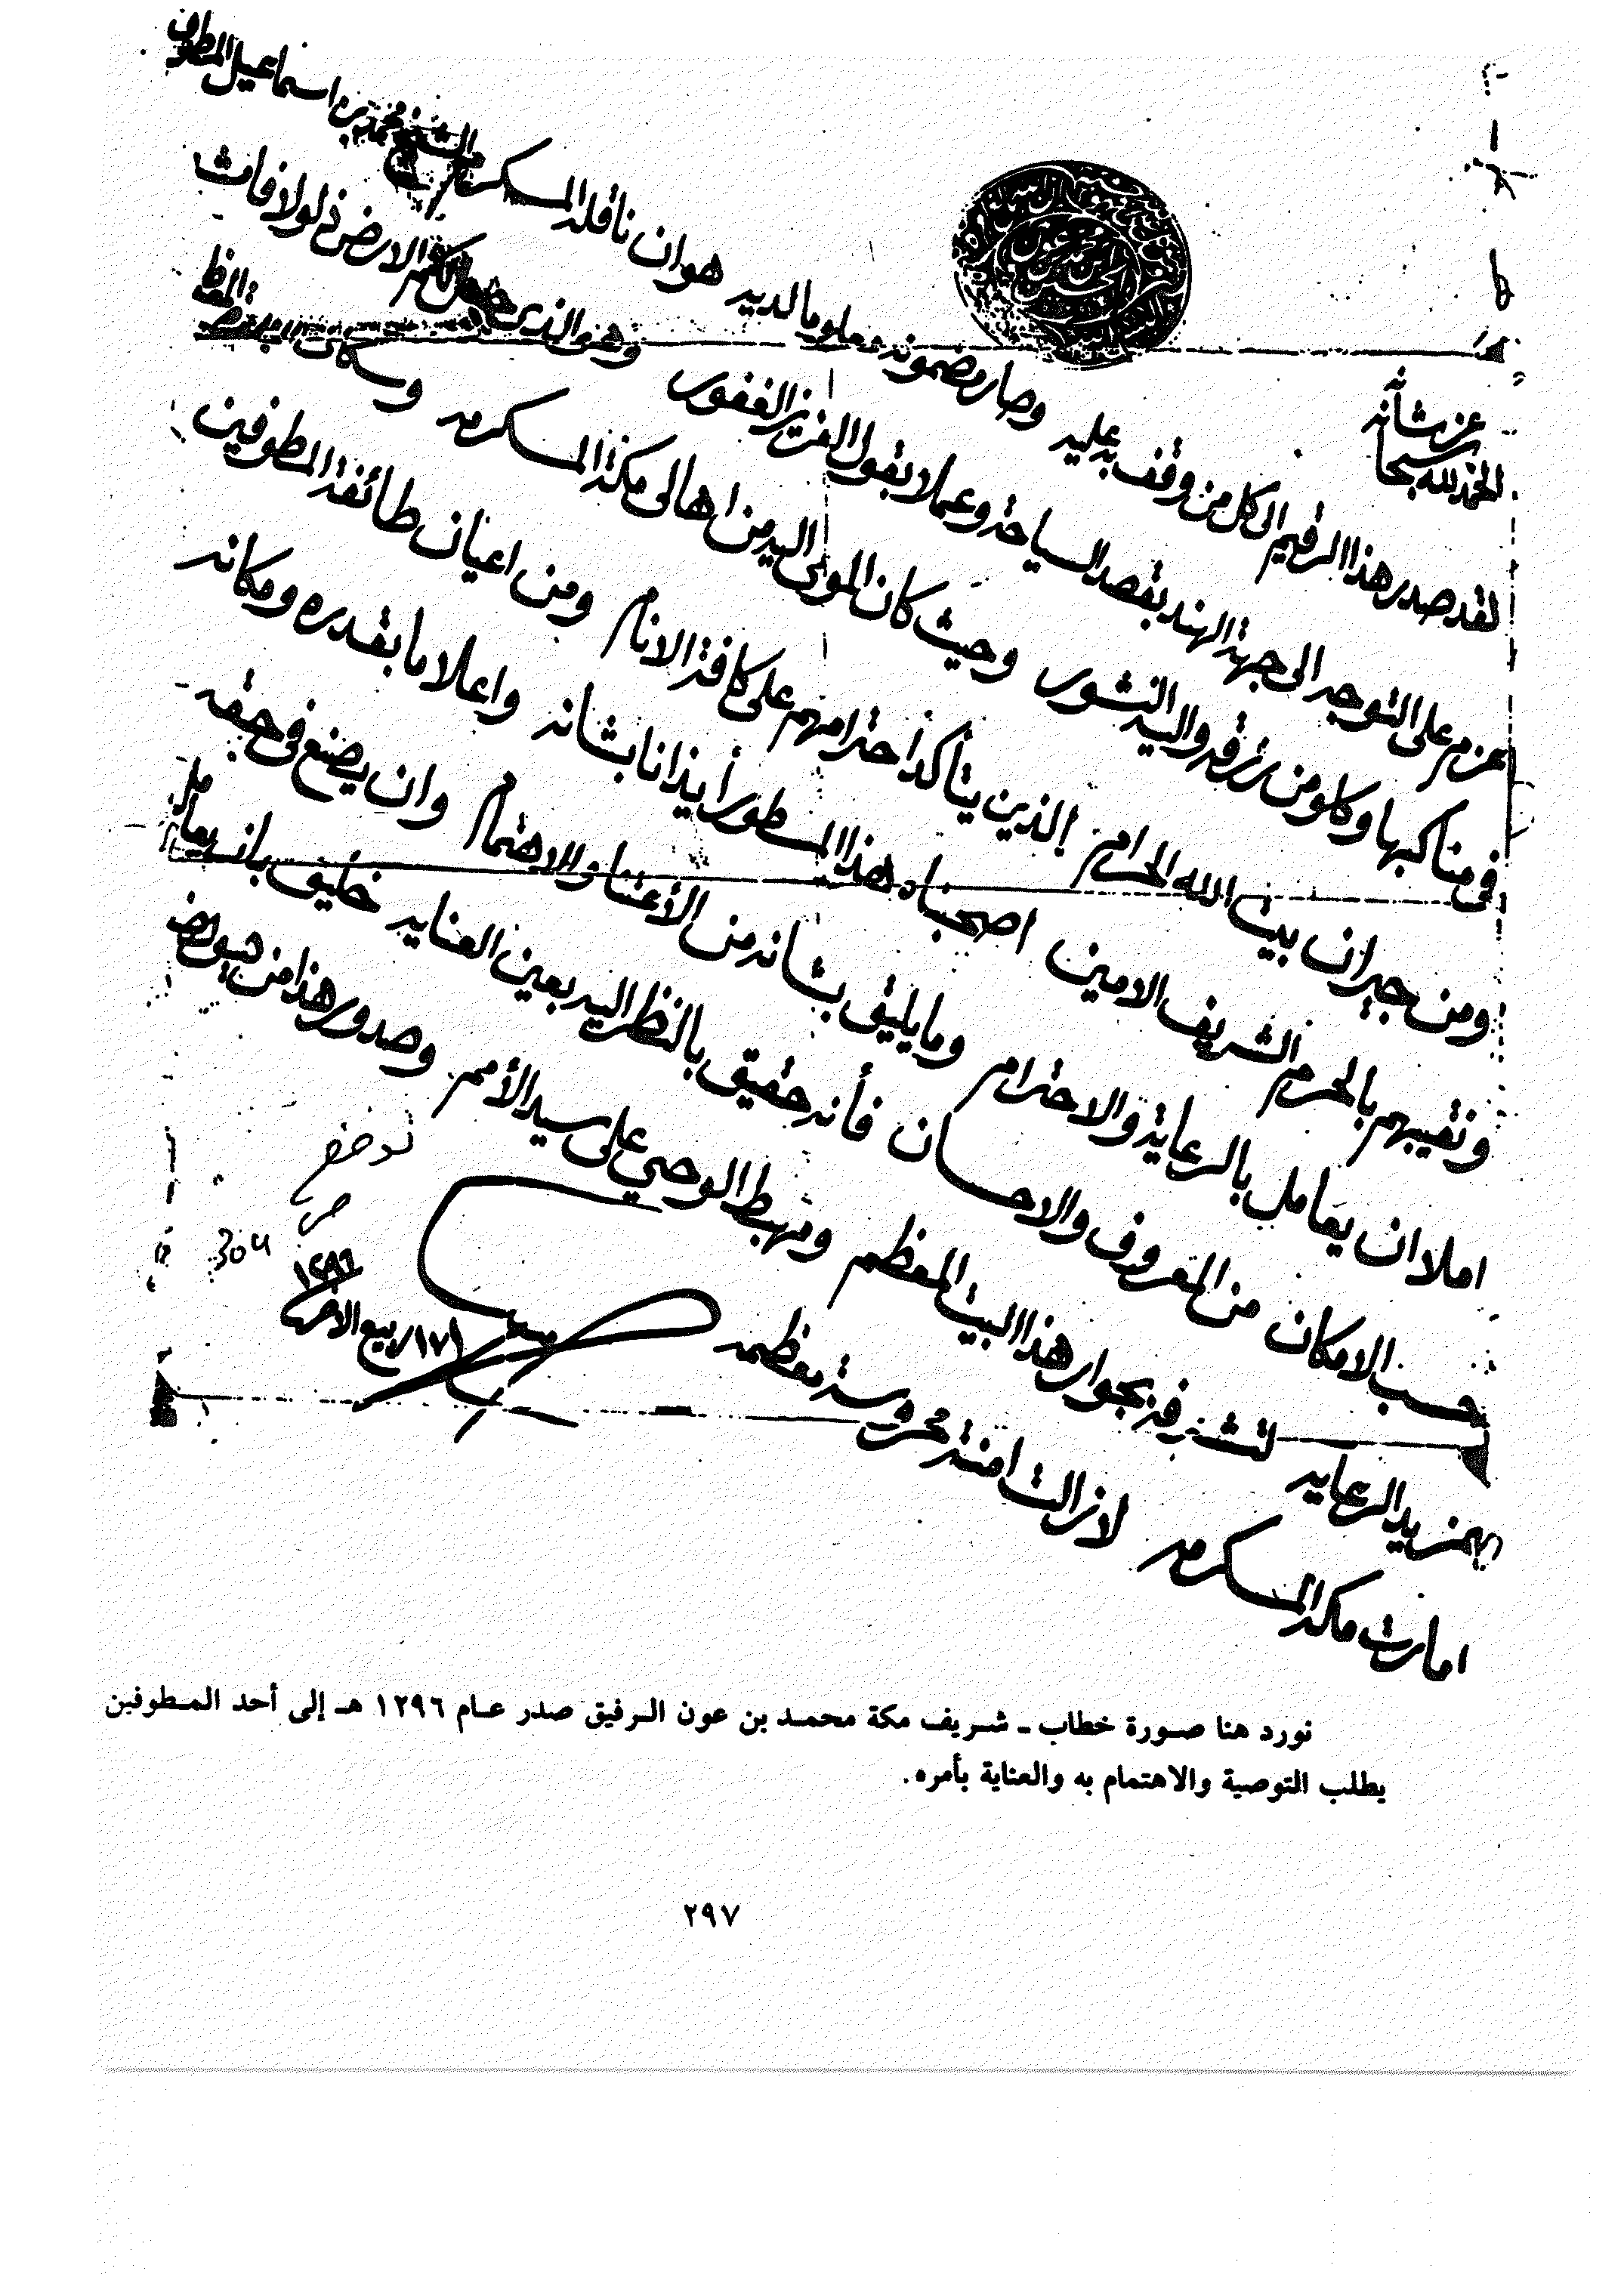 الحمد لله سبحانه
عز شأنه
لقد صدر هذا الرقيم الى كل من وقف به عليه وصار مضمونه معلوما لديه هو ان ناقله المكرم الشيخ محمد بن اسماعيل المطوف
عزم على التوجه الى جهة الهند بقصد السياحة وعملا بقول العزيز الغفور وهو الذى جعل لكم الارض ذلولا فامشوا
فى مناكبها وكلوا من رزقه واليه النشور وحيث كان المومى اليه من اهالى مكة المكرمه وسكان
ومن جيران بيت الله الحرام الذين يتأكد احترامهم على كافة الانام ومن اعيان طائفة المطوفين
ونقيبهم بالحرم الشريف الامين اصحبناه هذا المسطور أيذانا بشانه واعلاما بقدره ومكانه
املا ان يعامل بالرعاية والاحترام وما يليق بشانه من الأعتنا والاهتمام وان يصنع فى حقه
حسب الامكان من المعروف والاحسان فأنه حقيق بالنظر اليه بعين العنايه خليق بانه يعامل
بمزيد الرعايه لتشرفه بجوار هذا البيت المعظم ومهبط الوحي على سيد الأمم وصدور هذا من
امارت مكة المكرمه لازالت امنة محروسة معظمه
ربيع الاخر
١٢٩٦
نورد هنا صورة خطاب ـ شريف مكة محمد بن عون الرفيق صدر عام ١٢٩٦ هـ إلى أحد المطوفين
يطلب التوصية والاهتمام به والعناية بأمره.
٢٩٧